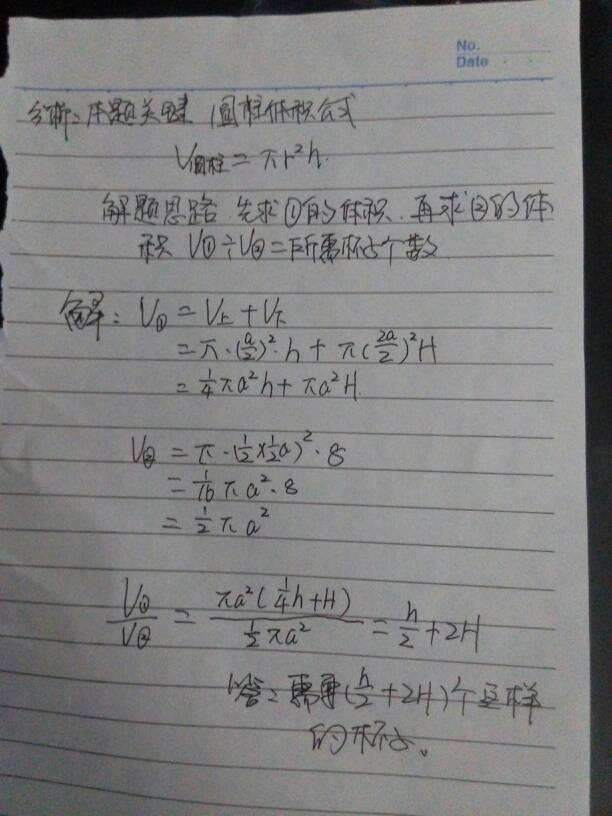 No.
Date
分析:本题关键 圆柱体积公式
V圆柱=πr²h.
解题思路 先求①的体积.再求②的体
积 V①÷V②=所需杯子个数
解:V①=V上+V下
=π·(a/2)²·h+π(2a/2)²H
=1/4πa²h+πa²H.
V②=π·(1/2×1/2a)²·8
=1/16πa²·8
=1/2πa²
V①/V②=πa²(1/4h+H)/1/2πa²=h/2+2H
答:需要(h/2+2H)个这样
的杯子。